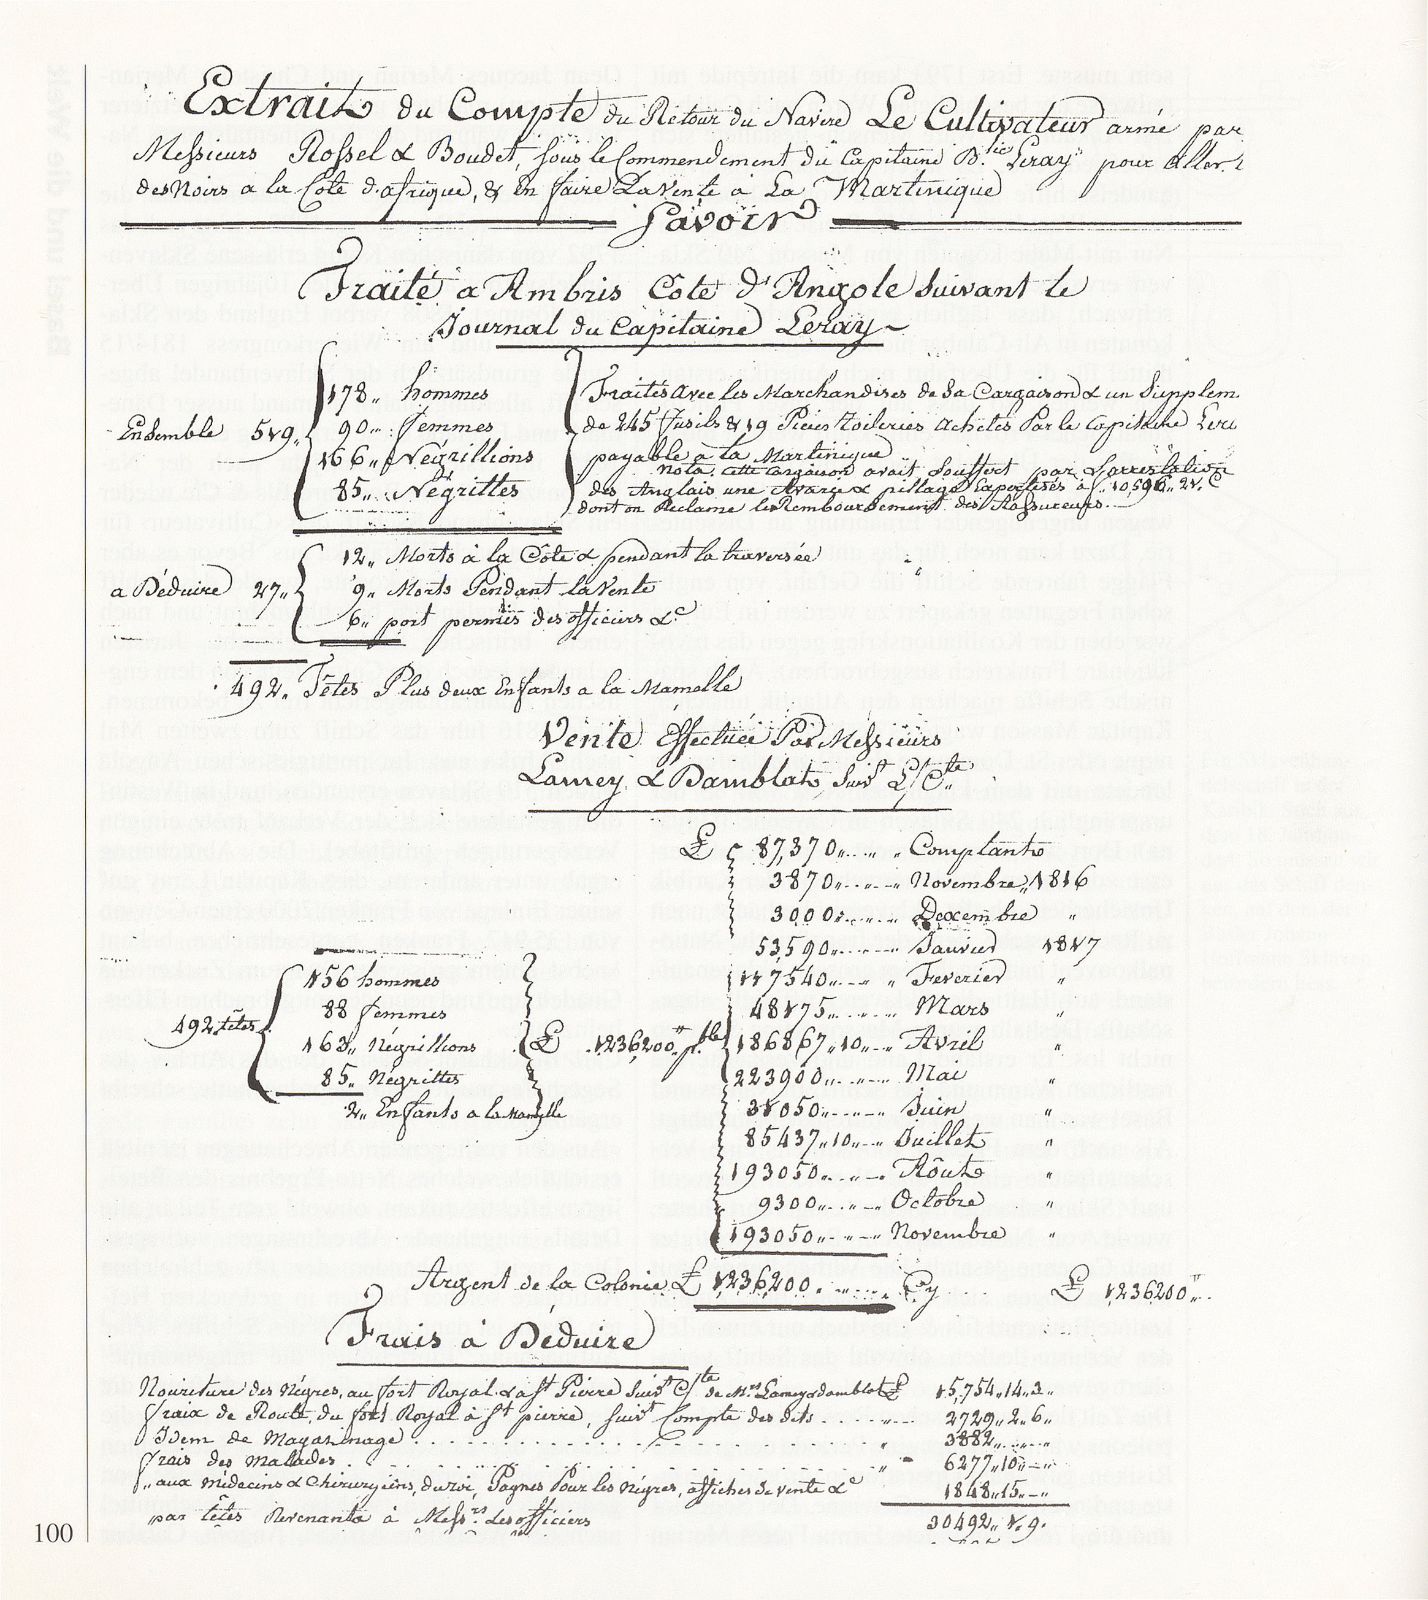 Extrait du Compte du Retour du Navire Le Cultivateur armé par
Messieurs Rossel & Boudet, sous le Commendement du Capitaine B.tie Leray pour aller
des Noirs a la Cote d'afrique, & en faire La Vente à La Martinique
Savoir
Traité a Ambris Côte d'Angole Suivant le
Journal du Capitaine Leray
Ensemble 519
178 hommes
90 femmes
166 Négrillions
85 Négrittes
Traités avec les Marchandises de Sa Cargaison & un Supplem
de 245 fusils & 19 Pieces toileries achetés Par le Capitaine Lera
payable a la Martinique
Nota: Cette Cargaison avait Souffert par L'arrestation
des Anglais une Avarie & pillage Expertisés a f 10,596 21 C
dont on Reclame le Remboursement des Assureurs.
a Déduire 27
12 Morts à la Côte & pendant la traversée
9 Morts Pendant la Vente
6 port permis des officiers &c
492 Têtes Plus deux Enfants a la Mamelle
Vente Effectuée Par Messieurs
Lamey & Damblat, Suivt L/Cte
£ 87,370 Comptant
3870 Novembre 1816
3000 Dexembre "
53,590 Janvier 1817
117540 Feverier "
48175 Mars "
186867 10 Avril "
223900 Mai "
31050 Juin "
85437 10 Juillet "
193050 Août "
9300 Octobre "
193050 Novembre "
492 têtes
156 hommes
88 femmes
163 Négrillions
85 Négrittes
2 Enfants a la Mamelle
£ 1236,200
Argent de la Colonie £ 1,236,200 Cy £ 1,236200
Frais à Déduire
Nouriture des Négres, au fort Royal & a St Pierre Suivt C/te de Mrs Lamey & damblat £ 15,754 14 3
fraix de Route, du fort Royal à St pierre, Suivt Compte des dits 2729 2 6
Idem de Magazinage 3882
frais des Malades 6277 10
aux médecins & Chirurgiens, du roi, Pagnes Pour les Négres, affiches de vente &c 1848 15
par têtes Revenants à Messrs Les officiers 30492 1 9
100